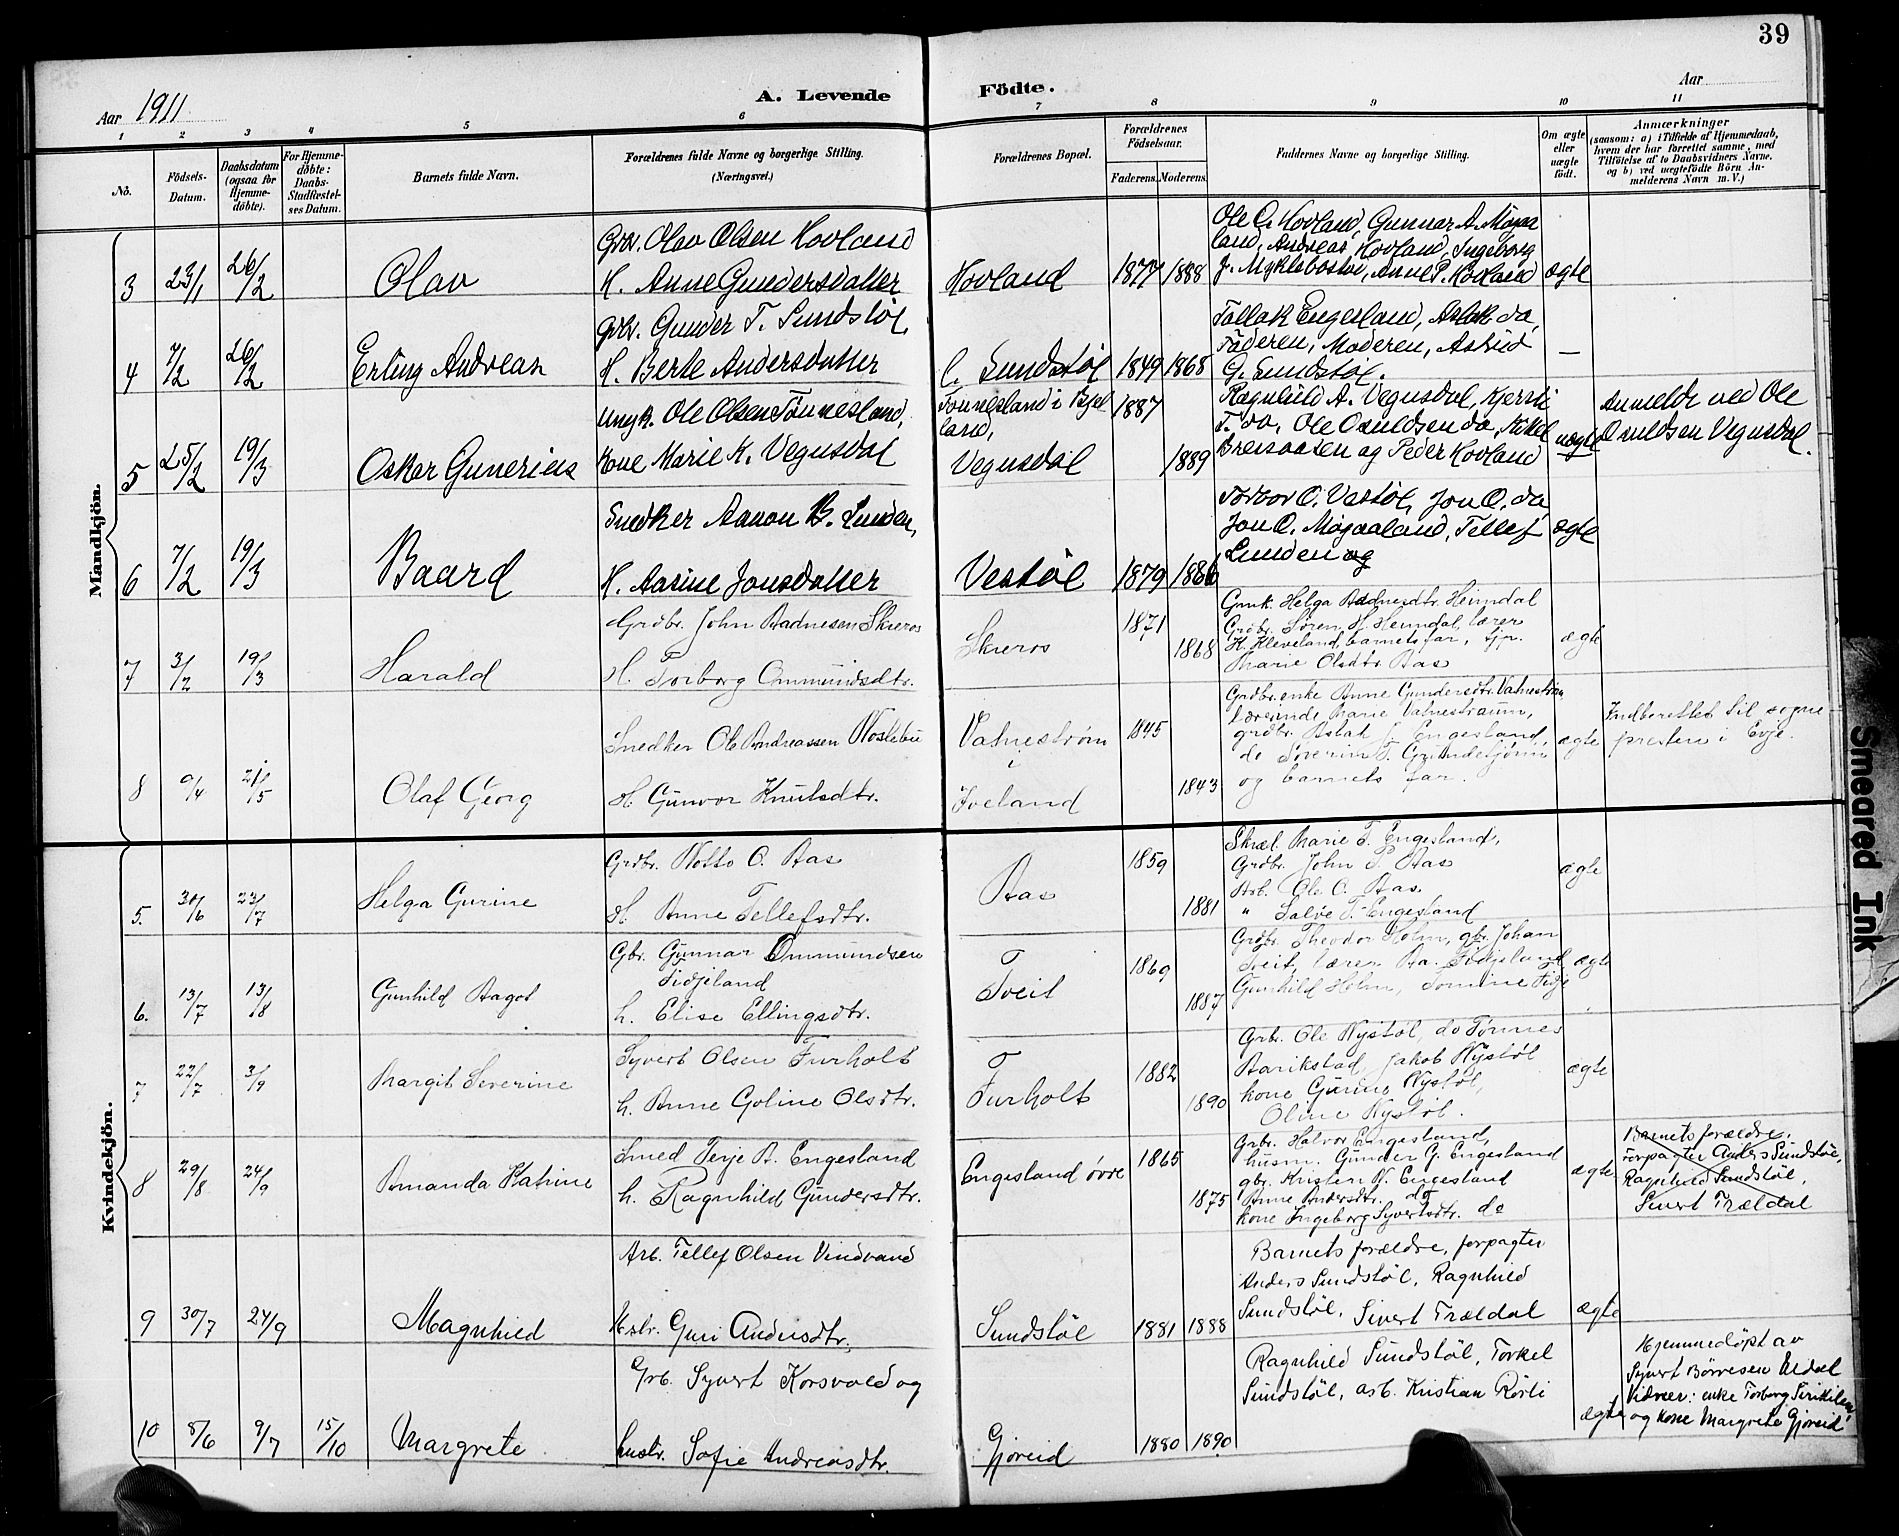 39
Aar 1911
A. Levende
Födte.
Aar
1 2 3 4 5 6 7 8 9 10 11
No.
Födsels-
Datum.
Daabsdatum
(ogsaa for
Hjemme-
döbte).
For Hjemme-
döbte:
Daabs-
Stadfæstel-
ses Datum.
Barnets fulde Navn.
Forældrenes fulde Navne og borgerlige Stilling.
(Næringsvei.)
Forældrenes Bopæl.
Forældrenes
Födselsaar.
Faderens. Moderens.
Faddernes Navne og borgerlige Stilling.
Om ægte
eller
uægte
födt.
Anmærkninger
(saasom: a) i Tilfælde af Hjemmedaab,
hvem der har forrettet samme, med
Tilföielse af to Daabsvidners Navne.
og b) ved uægtefödte Börn An-
melderens Navn m. V.)
Mandkjön.
3 23/1 26/2 Olav
Grbr. Olav Olsen Hovland
H. Anne Gundersdatter
Hovland 1877 1888
Ole O. Hovland, Gunnar A. Mygaa
land, Andreas Hovland, Ingeborg
J. Myklebostøl, Anne P. Hovland
ægte
4 7/2 26/2 Erling Andreas
Grbr. Gunder T. Sundstøl,
H. Berte Andersdatter
Sundstøl 1849 1868
Tallak Engesland, Aslak do,
Faderen, Moderen, Astrid
G. Sundstøl.
—
5 25/2 19/3 Oskar Gunerius
Ungk. Ole Olsen Tønnesland,
Kone Marie K. Vegusdal
Tonnesland i Bjel
land,
Vegusdal
1887
1889
Ragnhild A. Vegusdal, Kjersti
T. do, Ole Osuldsen do, Kikel
Breivaasen og Peder Hovland
uægte
Anmeldt ved Ole
Osuldsen Vegusdal.
6 7/2 19/3 Baard
Snedker Aanon B. Lunden,
H. Aasine Jonsdatter
Vestøl 1879 1886
Torbor O. Vestøl, Jon O. do,
Jon O. Mygaaland, Tellef
Lunden og
ægte
7 3/2 19/3 Harald
Grdbr. John Aadnesen Skreros
H. Torborg Ommundsdtr.
Skreros
1871
1868
Gmk. Helga Aadnesdtr. Heimdal
Grdbr. Søren H. Heimdal, lærer
K. Kleveland, barnets far,
Marie Olsdtr. Aas
ægte
8 9/4 21/5 Olaf Georg
Snedker Ole Andreassen Noslebu
H. Gunvor Knutsdtr.
Vatnestrøm
i
Iveland
1845
1843
Grdbr. enke Anne Gundersdtr. Vatnestrøm,
lærerinde Marie Vatnestraum,
grdbr. Aslak J. Engesland,
do Severin T. Grundetjønn
og barnets far.
ægte
Indberettet til sogne-
presten i Evje.
Kvindekjön.
5. 30/6 23/7 Helga Gurine
Grdbr. Notto O. Aas
H. Anne Tellefsdtr.
Aas
1859
1881
Skræl. Marie T. Engesland,
Grdbr. John T. Aas
Arb. Ole O. Aas.
" Salve T. Engesland
ægte
6. 13/7 13/8 Gunhild Aagot
Gbr. Gunnar Ommundsen
Tidjeland
h. Elise Ellingsdtr.
Tveit
1869
1887
Grdbr. Theodor Holm, gbr. Johan
Tveit, lærer Aa. Tidjeland
Gunhild Holm, Tomine Tidje
ægte
7 22/7 3/9 Margit Severine
Syvert Olsen Furholt
h. Anne Goline Olsdtr.
Furholt
1882
1890
Grbr. Ole Nystøl, do Tønnes
Aarikstad, Jakob Nystøl
kone Gurine Nystøl,
Oline Nystøl.
ægte
8 29/8 24/9 Amanda Katrine
Smed Terje A. Engesland
h. Ragnhild Gundersdtr.
Engesland övre
1865
1875
Grbr. Halvor Engesland,
husm. Gunder G. Engesland
gbr. Kristen N. Engesland
Anne Andersdtr. do
kone Ingeborg Syvertsdtr. do
ægte
Barnets forældre,
Forpagter Anders Sundstøl,
Ragnhild Sundstøl,
Sivert Trældal
9 30/7 24/9 Magnhild
Arb. Tellef Olsen Vindvand
Hstr. Guri Andersdtr.
Sundstøl 1881 1888
Barnets forældre, forpagter
Anders Sundstøl, Ragnhild
Sundstøl, Sivert Trældal
ægte
10 8/6 9/7 15/10 Margrete
Grb. Syvert Korsvold og
hustr. Sofie Andreasdtr.
Gjøreid 1880 1890
Ragnhild Sundstøl, Torkel
Sundstøl, arb. Kristian Rørli
ægte
Hjemmedøpt av
Syvert Børresen Uldal
Vidner: enke Torborg
og kone Margrete Gjøreid
Smeared Ink